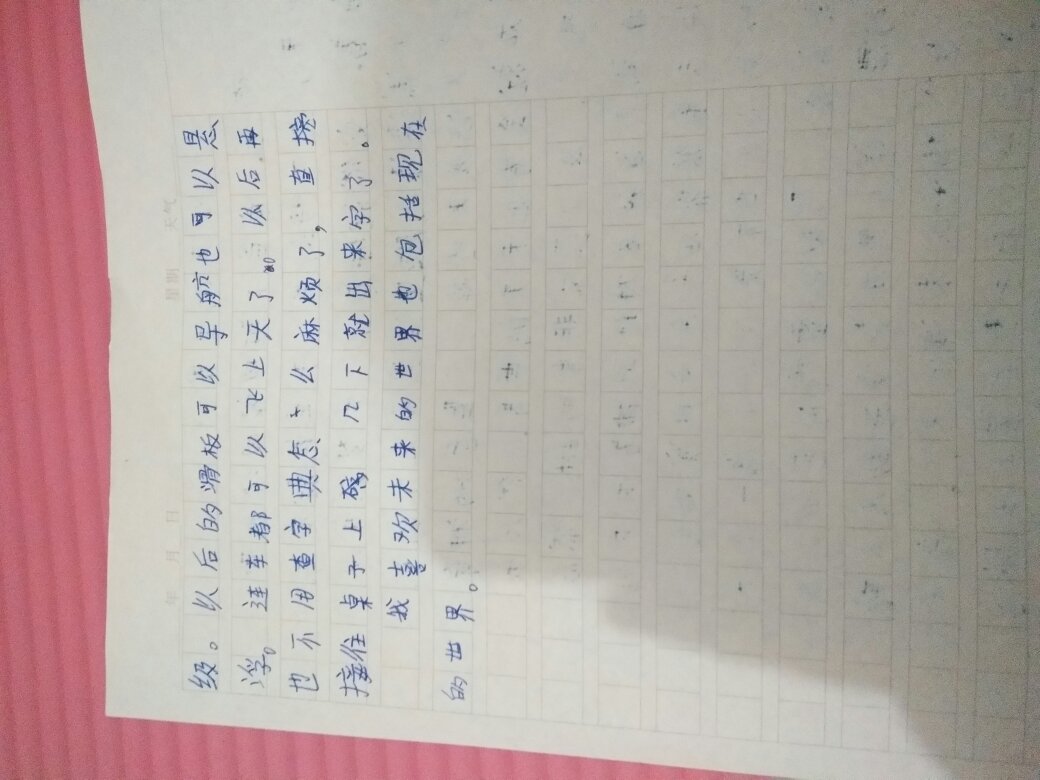 年 月 日 星期 天气
级。以后的滑板可以导航也可以悬
浮。连车都可以飞上天了。以后再
也不用查字典怎么麻烦了，直
接往桌子上几下就出来字了。
我喜欢未来的世界也包括现在
的世界。